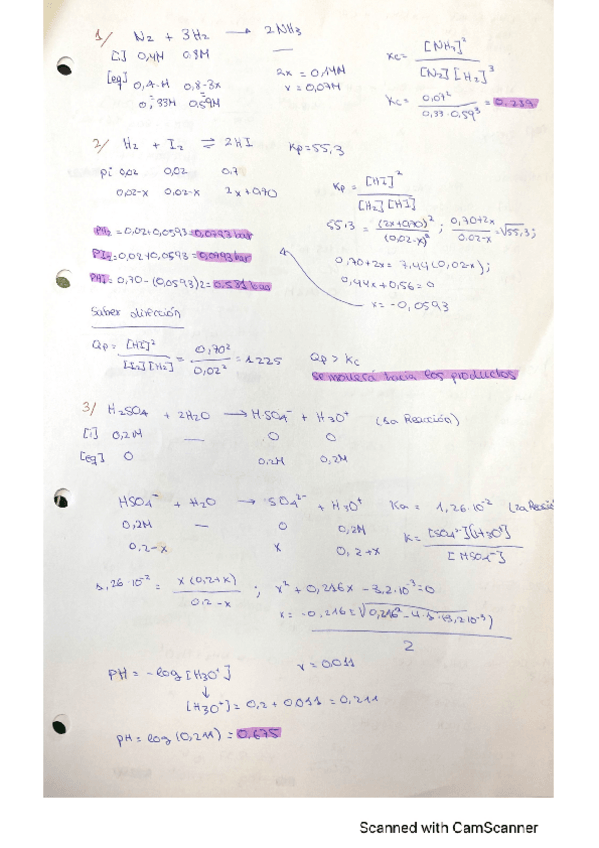 1/ N2 + 3H2 → 2NH3
[i] 0,4M 0,8M —
[eq] 0,4-x 0,8-3x
0,33M 0,59M
2x = 0,14M
x = 0,07M
Kc = [NH3]² / [N2][H2]³
Kc = 0,07² / 0,33·0,59³ = 0,239
2/ H2 + I2 ⇌ 2HI Kp=55,3
Pi 0,02 0,02 0.7
0,02-x 0,02-x 2x+0,70
Kp = [HI]² / [H2][HI]
55.3 = (2x+0,70)² / (0,02-x)² ; 0,70+2x / 0.02-x = √55,3;
0,70+2x = 7,44(0,02-x);
0,44x+0,56=0
x = -0,0593
PH2 = 0,02+0,0593=0,0793 bar
PI2=0,02+0,0593=0,0793 bar
PHI= 0,70-(0,0593)2=0.581 bar
Saber dirección
Qp= [HI]² / [I2][H2] = 0,70² / 0,02² = 1225 Qp > Kc
se moverá hacia los productos
3/ H2SO4 + 2H2O → HSO4⁻ + H3O⁺ (1a Reacción)
[i] 0,2M — 0 0
[eq] 0 0,2M 0,2M
HSO4⁻ + H2O → SO4²⁻ + H3O⁺ Ka = 1,26·10⁻² (2a Reacció
0,2M — 0 0,2M
0,2-x x 0,2+x
K= [SO4²⁻][H3O⁺] / [HSO4⁻]
1,26·10⁻² = x(0,2+x) / 0.2-x ; x² + 0,216x - 3,2·10⁻³=0
x= -0,216±√0,216² - 4·1·(3,2·10⁻³) / 2
x = 0,011
PH = -log [H3O⁺]
↓
[H3O⁺] = 0,2 + 0,011 = 0,211
PH = log (0,211) = 0,675
Scanned with CamScanner